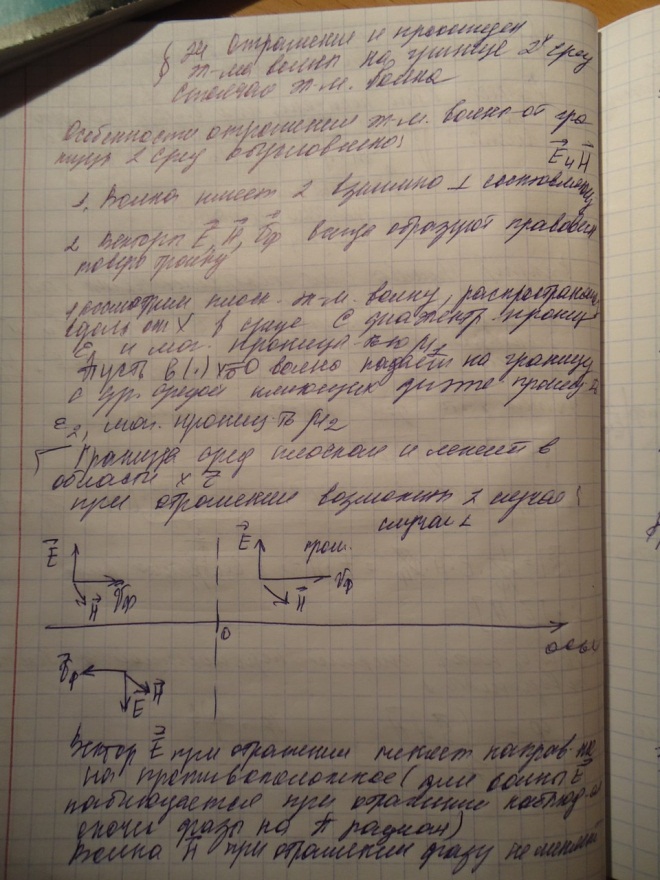 § 24 Отражение и прохожден
эл-маг волны на границе 2х сред
Стоячая эл-м. волна
Особенности отражения эл-м. волны от гра
ницы 2 сред обусловлено:
1. Волна имеет 2 взаимно ⊥ составляющ
E⃗ и H⃗
2 Векторы E⃗, H⃗, v⃗ф всегда образуют правовин
товую тройку
Рассмотрим плоск. эл-м. волну, распростран
вдоль оси X в среде с диэлектр. прониц
ε и маг. прониц
Пусть в (.) x=0 волна падает на границу
с др. средой имеющих диэл прониц
ε₂, маг. прониц-ть μ₂
Граница сред плоская и лежит в
области
при отражении возможны 2 случая:
случай 1
E⃗
H⃗
v⃗ф
E⃗
прош.
v⃗ф
H⃗
0
ось
v⃗ф
H⃗
E⃗
Вектор E⃗ при отражении меняет направ-ие
на противоположное (для волны E⃗
наблюдается при отражении
скачок фазы на π радиан)
Волна H⃗ при отражении фазу не меняет